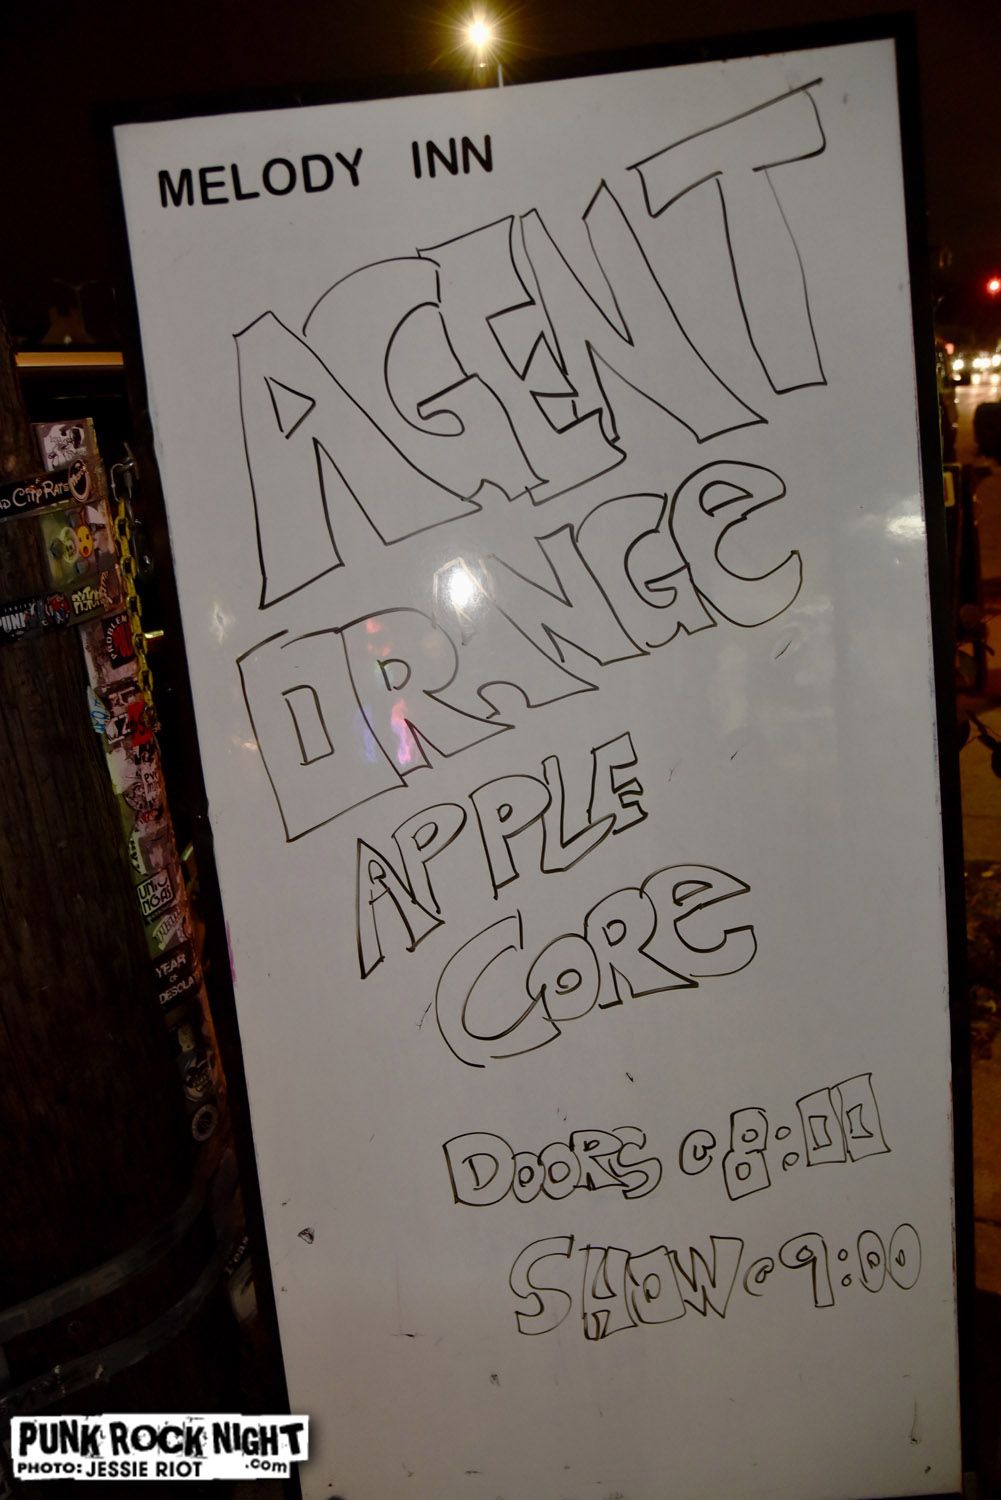 MELODY INN
AGENT
ORANGE
APPLE
CORE
DOORS @ 8:00
SHOW @ 9:00
PUNK
PROBLEM
YEAR
OF
PUNK ROCK NIGHT
.com
PHOTO: JESSIE RIOT